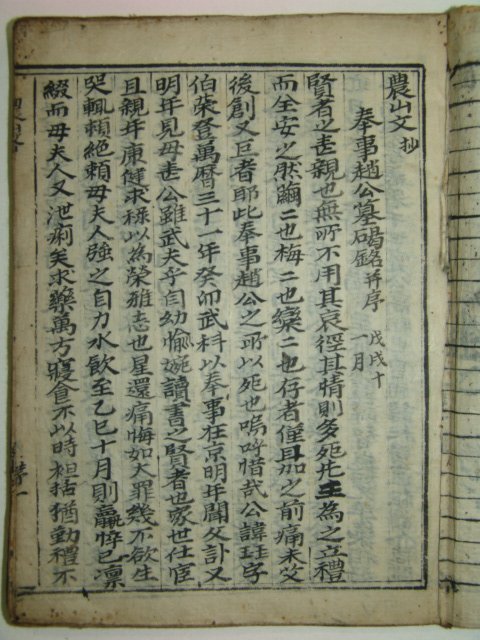 農山文抄
奉事趙公墓碣銘并序 戊戌十一月
賢者之喪親也無所不用其哀徑其情則多死先王為之立禮
而全安之然繭二也梅二也欒二也仔者僅耳加之前痛未艾
後創又巨者耶此奉事趙公之所以死也嗚呼惜哉公諱玨字
伯榮登萬曆三十一年癸卯武科以奉事在京明年聞父訃又
明年見母喪公雖武夫乎自幼愉婉讀書之賢者也家世仕宦
且親年康健求祿以為榮雅志也星還痛悔如大罪幾不欲生
哭輒頼絶賴母夫人強之自力水飲至乙巳十月則羸悴已凛
綴而母夫人又泄痢矣求藥萬方寢食不以時柤括猶勤禮不